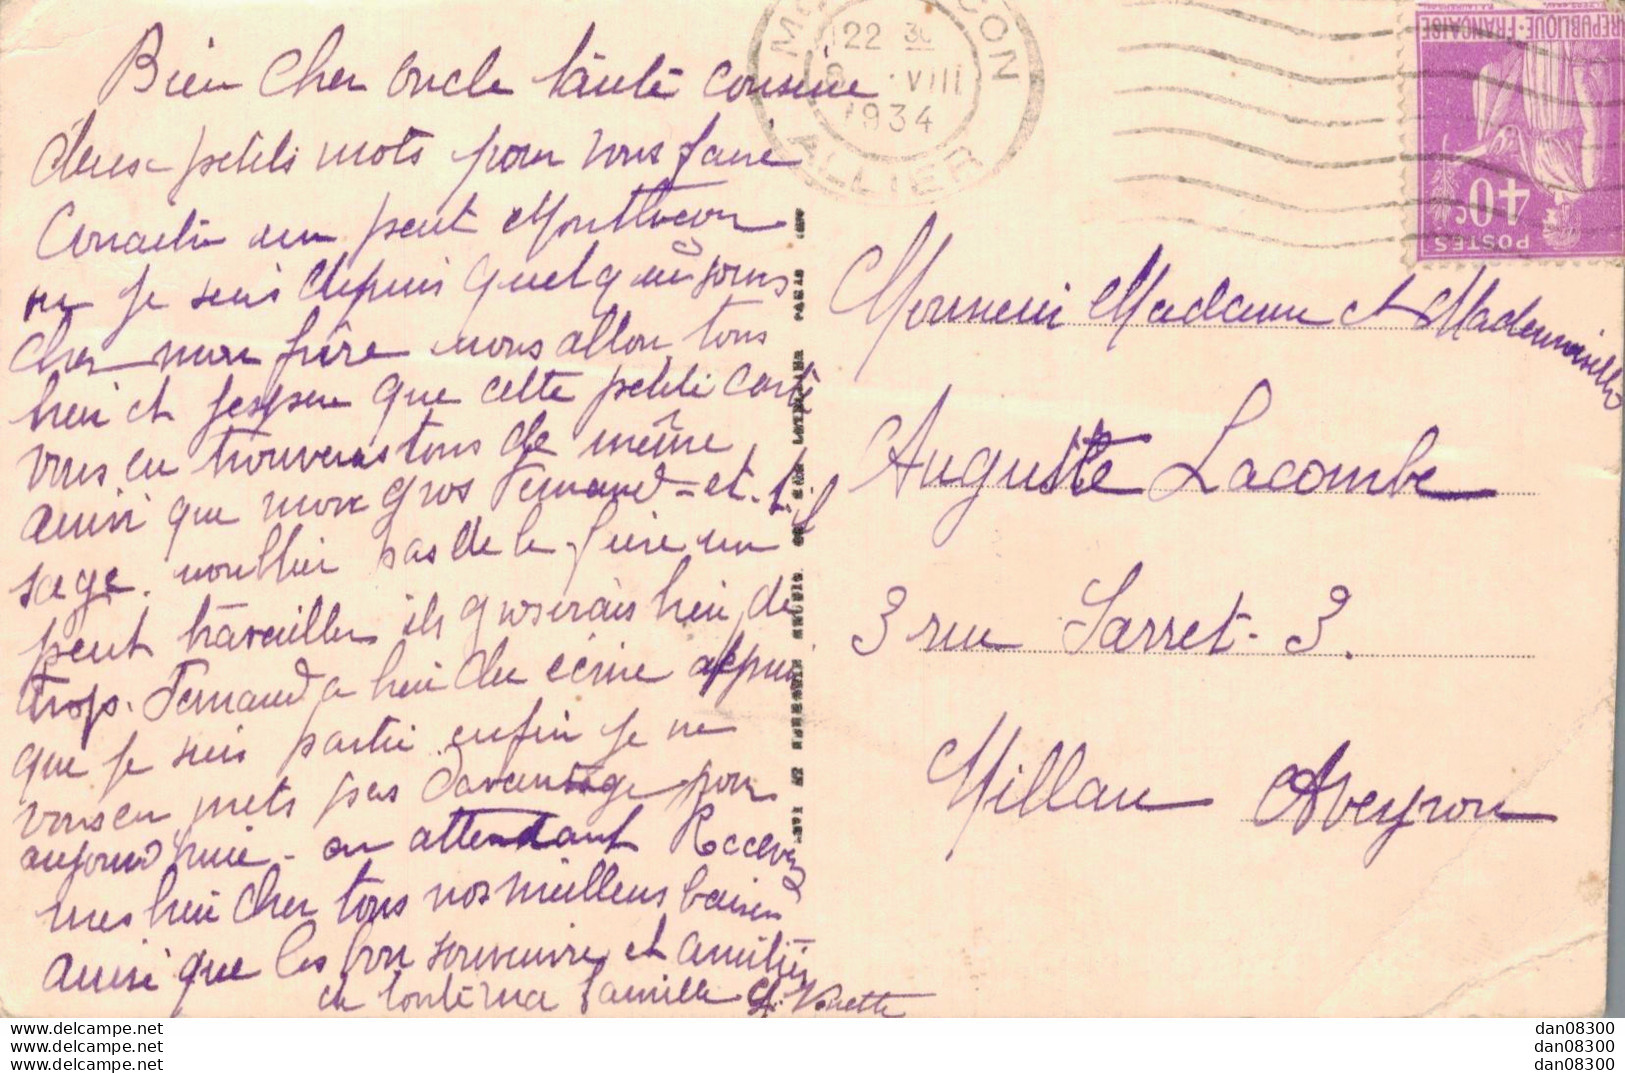 Bien cher oncle tante cousine
deux petits mots pour vous faire
Conaitre un peut Montlucon
ou je suis depuis quelque jours
cher mon frère nous allon tous
bien et jespere que cette petite carte
vous en trouveras tous de même
ainsi que mon gros Fernand - et
sage. noublier pas de le faire un
peut travailler ils groserais bien de
trop. Fernand a bien du écrire depuis
que je suis partie enfin je ne
vous en mets pas davantage pour
aujourd huie - on attendant Recever
mes bien cher tous nos meilleurs baisers
ainsi que les bon souvenire et amitiés
de toute ma famille Y. Vorette
MO CON
22 30
8 VIII
1934
ALLIER
REPUBLIQUE FRANÇAISE
40c
POSTES
Monsieur Madame et Mademoiselle
Auguste Lacombe
3 rue Sarret - 3.
Millau Aveyron
dan08300.delcampe.net
dan08300.delcampe.net
dan08300.delcampe.net
dan08300
dan08300
dan08300